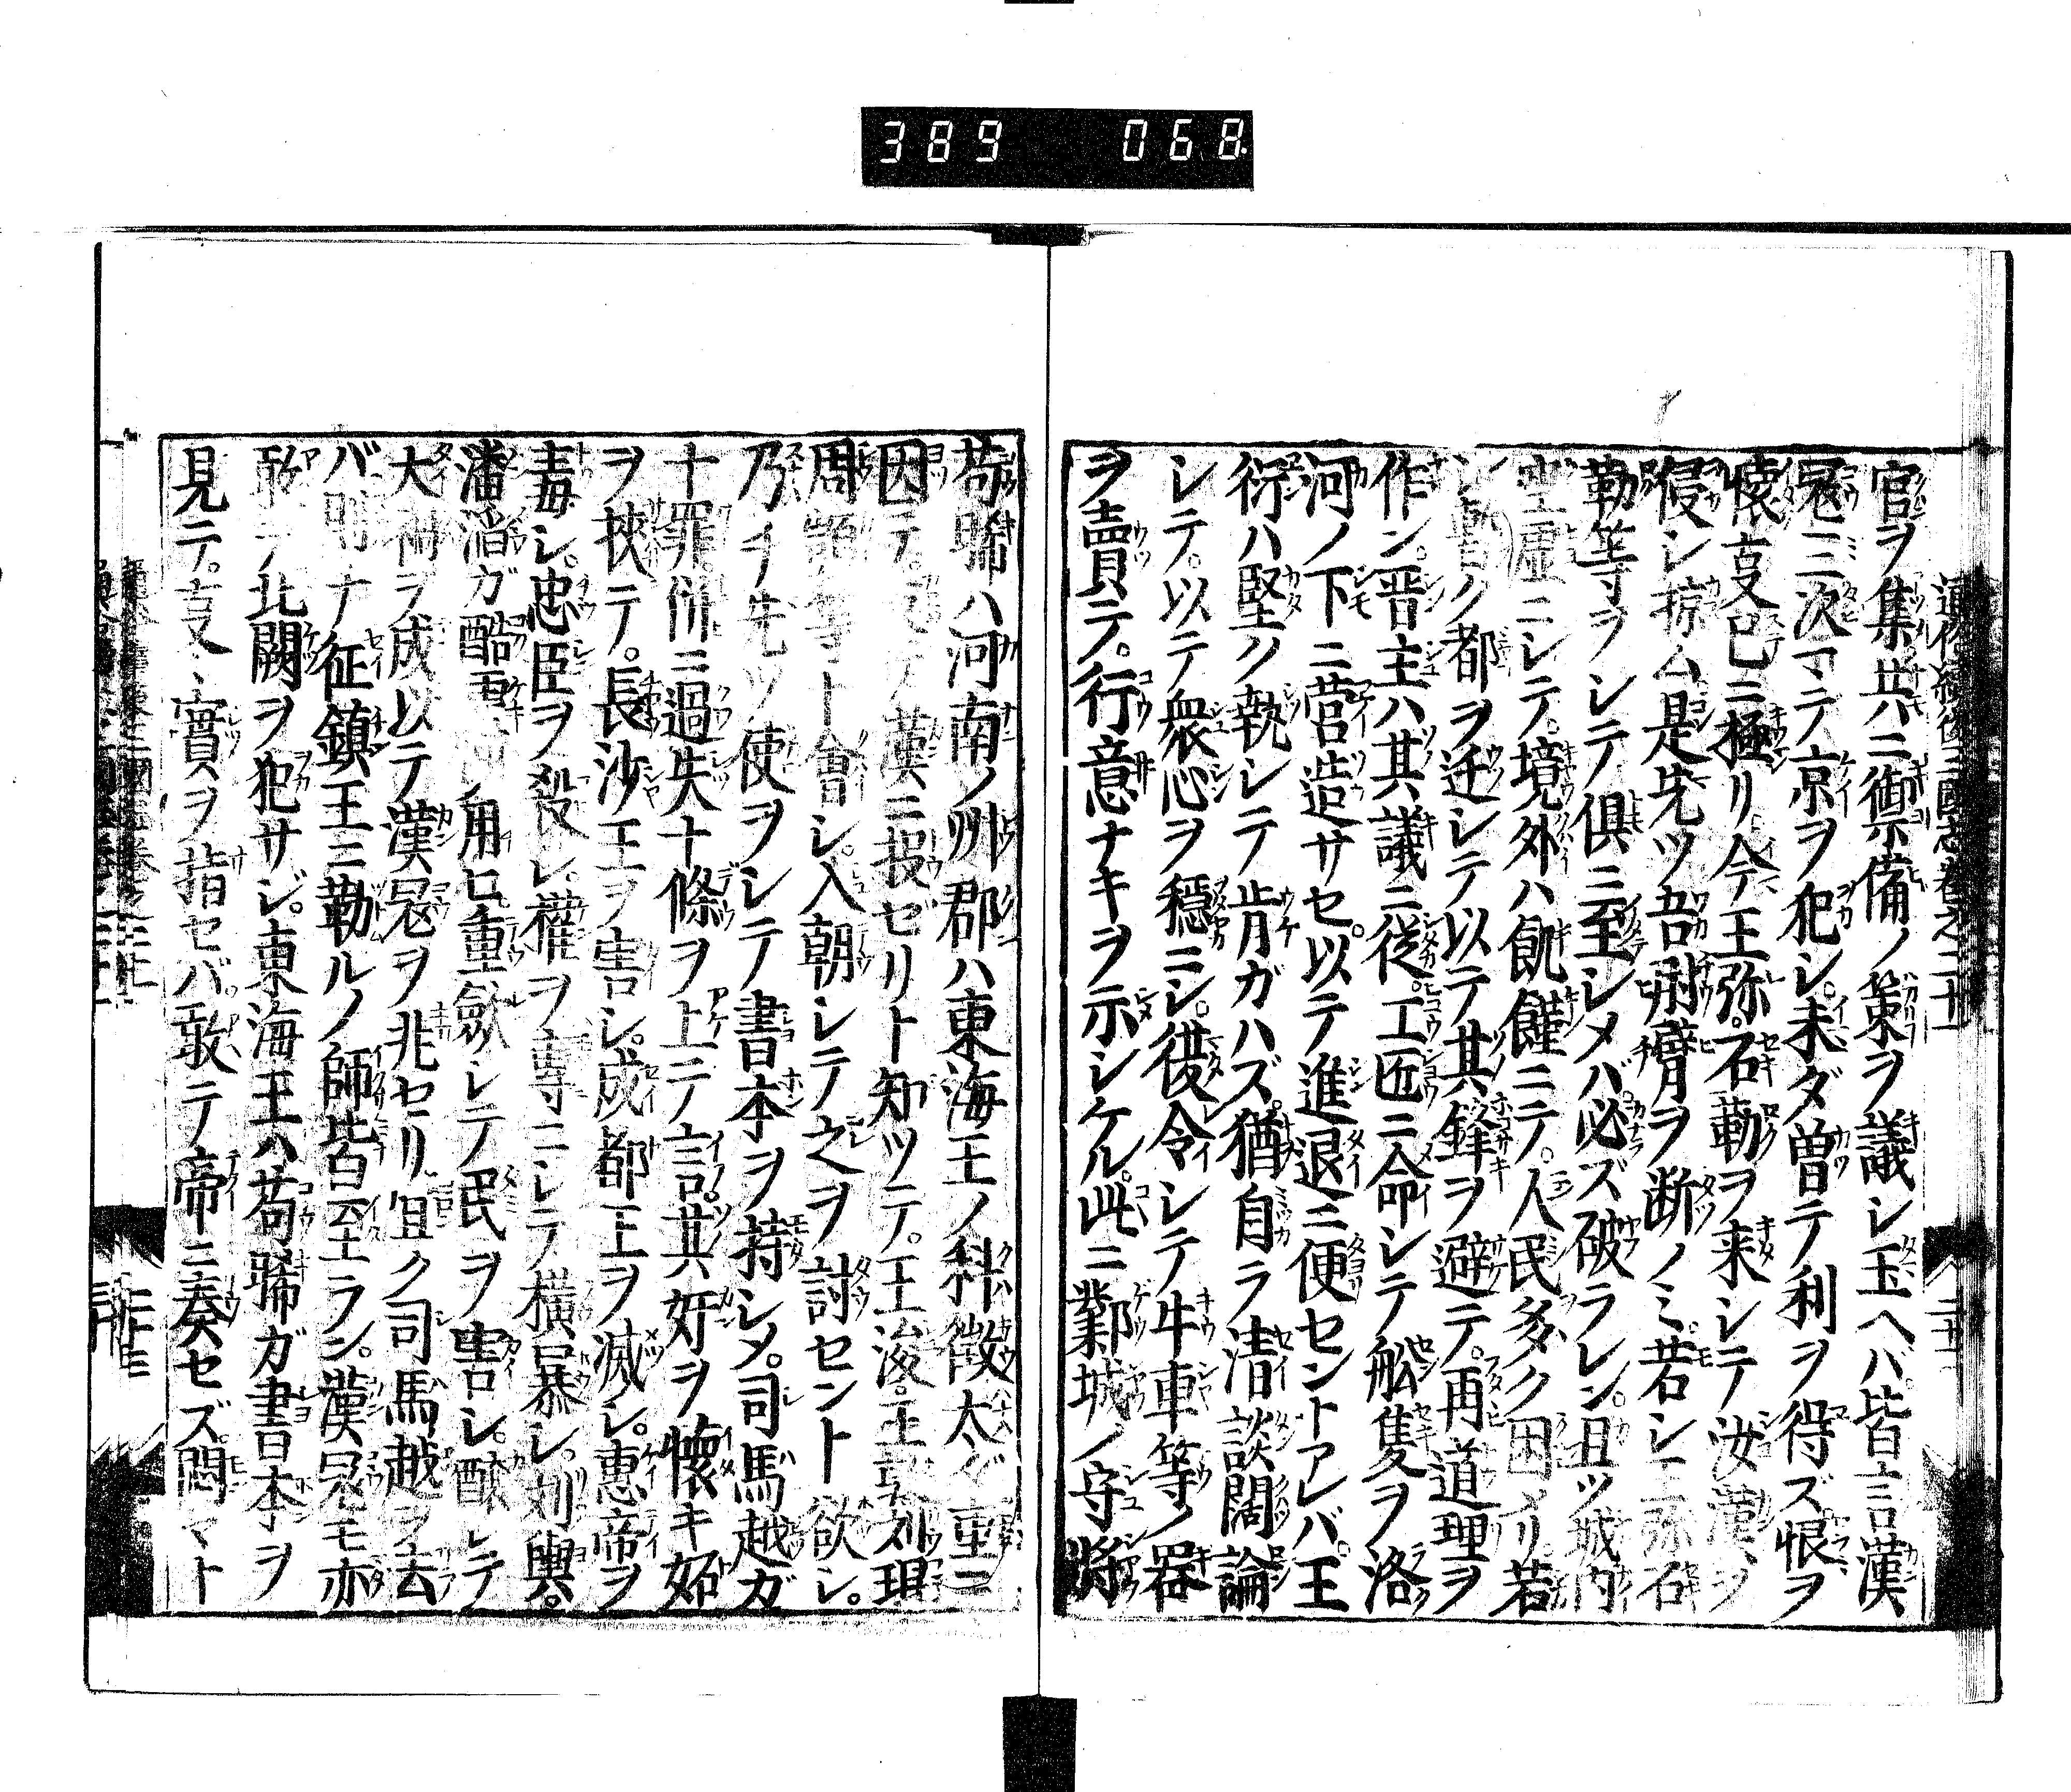 389 068
通俗續後三國志卷之二十
官ヲ集共ニ禦備ノ策ヲ議シ玉ヘバ皆言漢
冦三次マテ京ヲ犯シ未ダ曽テ利ヲ得ズ恨ヲ
懐叓已ニ極リ今王弥石勒ヲ来シテ汝漢ヲ
侵シ掠ム是先ツ吾カ臂ヲ断ノミ若シ王弥石
勒等ヲシテ俱ニ至シメバ必ズ破ラレン且ツ城内
空虚ニシテ境外ハ飢饉ニテ人民多ク困メリ若
シ暫ク都ヲ迁シテ以テ其鋒ヲ避テ再道理ヲ
作ン晋主ハ其議ニ従工匠ニ命シテ舩隻ヲ洛
河ノ下ニ営造サセ以テ進退ニ便セントアレバ王
衍ハ堅ク執シテ肯ガハズ猶自ラ清談闊論
シテ以テ衆心ヲ穏ニシ復令シテ牛車等ノ器
ヲ賣テ行意ナキヲ示シケル此ニ鄴城ノ守將
苟晞ハ河南ノ州郡ハ東海王ノ科徴太ダ重ニ
因テ漢ニ投ゼリト知ツテ王浚王劉琨
周顗等ト會シ入朝シテ之ヲ討セント欲シ
乃チ先ツ使ヲシテ書本ヲ持シメ司馬越ガ
十罪併ニ過失十條ヲ上テ言其奸ヲ懐キ妬
ヲ挾テ長沙王ヲ害シ成都王ヲ滅シ惠帝ヲ
毒シ忠臣ヲ殺シ權ヲ專ニシテ横暴シ劉輿
潘滔ガ酷 用ヒ重斂シテ民ヲ害シ釀シテ
大禍ヲ成以テ漢冦ヲ兆セリ宜ク司馬越ヲ去
バ則ナ征鎮王ニ勒ルノ師皆至ラン漢冦モ亦
敢テ北闕ヲ犯サジ東海王ハ苟晞ガ書本ヲ
見テ叓〻實ヲ指セバ敢テ帝ニ奏セズ悶マト